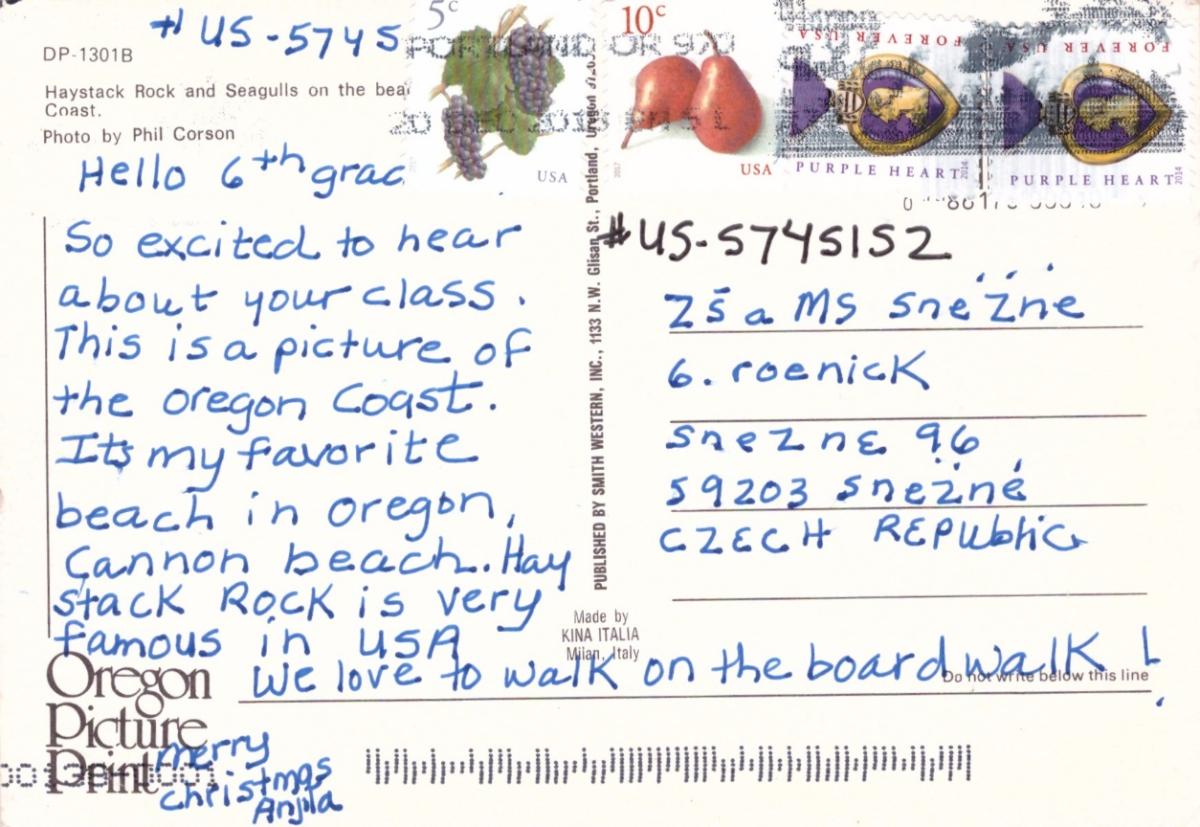 # US-5745
DP-1301B
Haystack Rock and Seagulls on the bea
Coast.
Photo by Phil Corson
Hello 6th grac
So excited to hear
about your class.
This is a picture of
the oregon Coast.
Its my favorite
beach in oregon,
Cannon beach. Hay
stack Rock is very
famous in USA
We love to walk on the boardwalk!
merry
christmas
Anjla
Oregon
Picture
Print
5c
USA
10c
USA
2017
PORTLAND OR 970
FOREVER USA
PURPLE HEART
2014
FOREVER USA
PURPLE HEART
2014
PUBLISHED BY SMITH WESTERN, INC., 1133 N.W. Glisan St., Portland, Oregon
#US-5745152
ZŠ a MS Snežné
6. roenick
Snezne 96
59203 Snežné
CZECH REPUbliC
Made by
KINA ITALIA
Milan, Italy
Do not write below this line